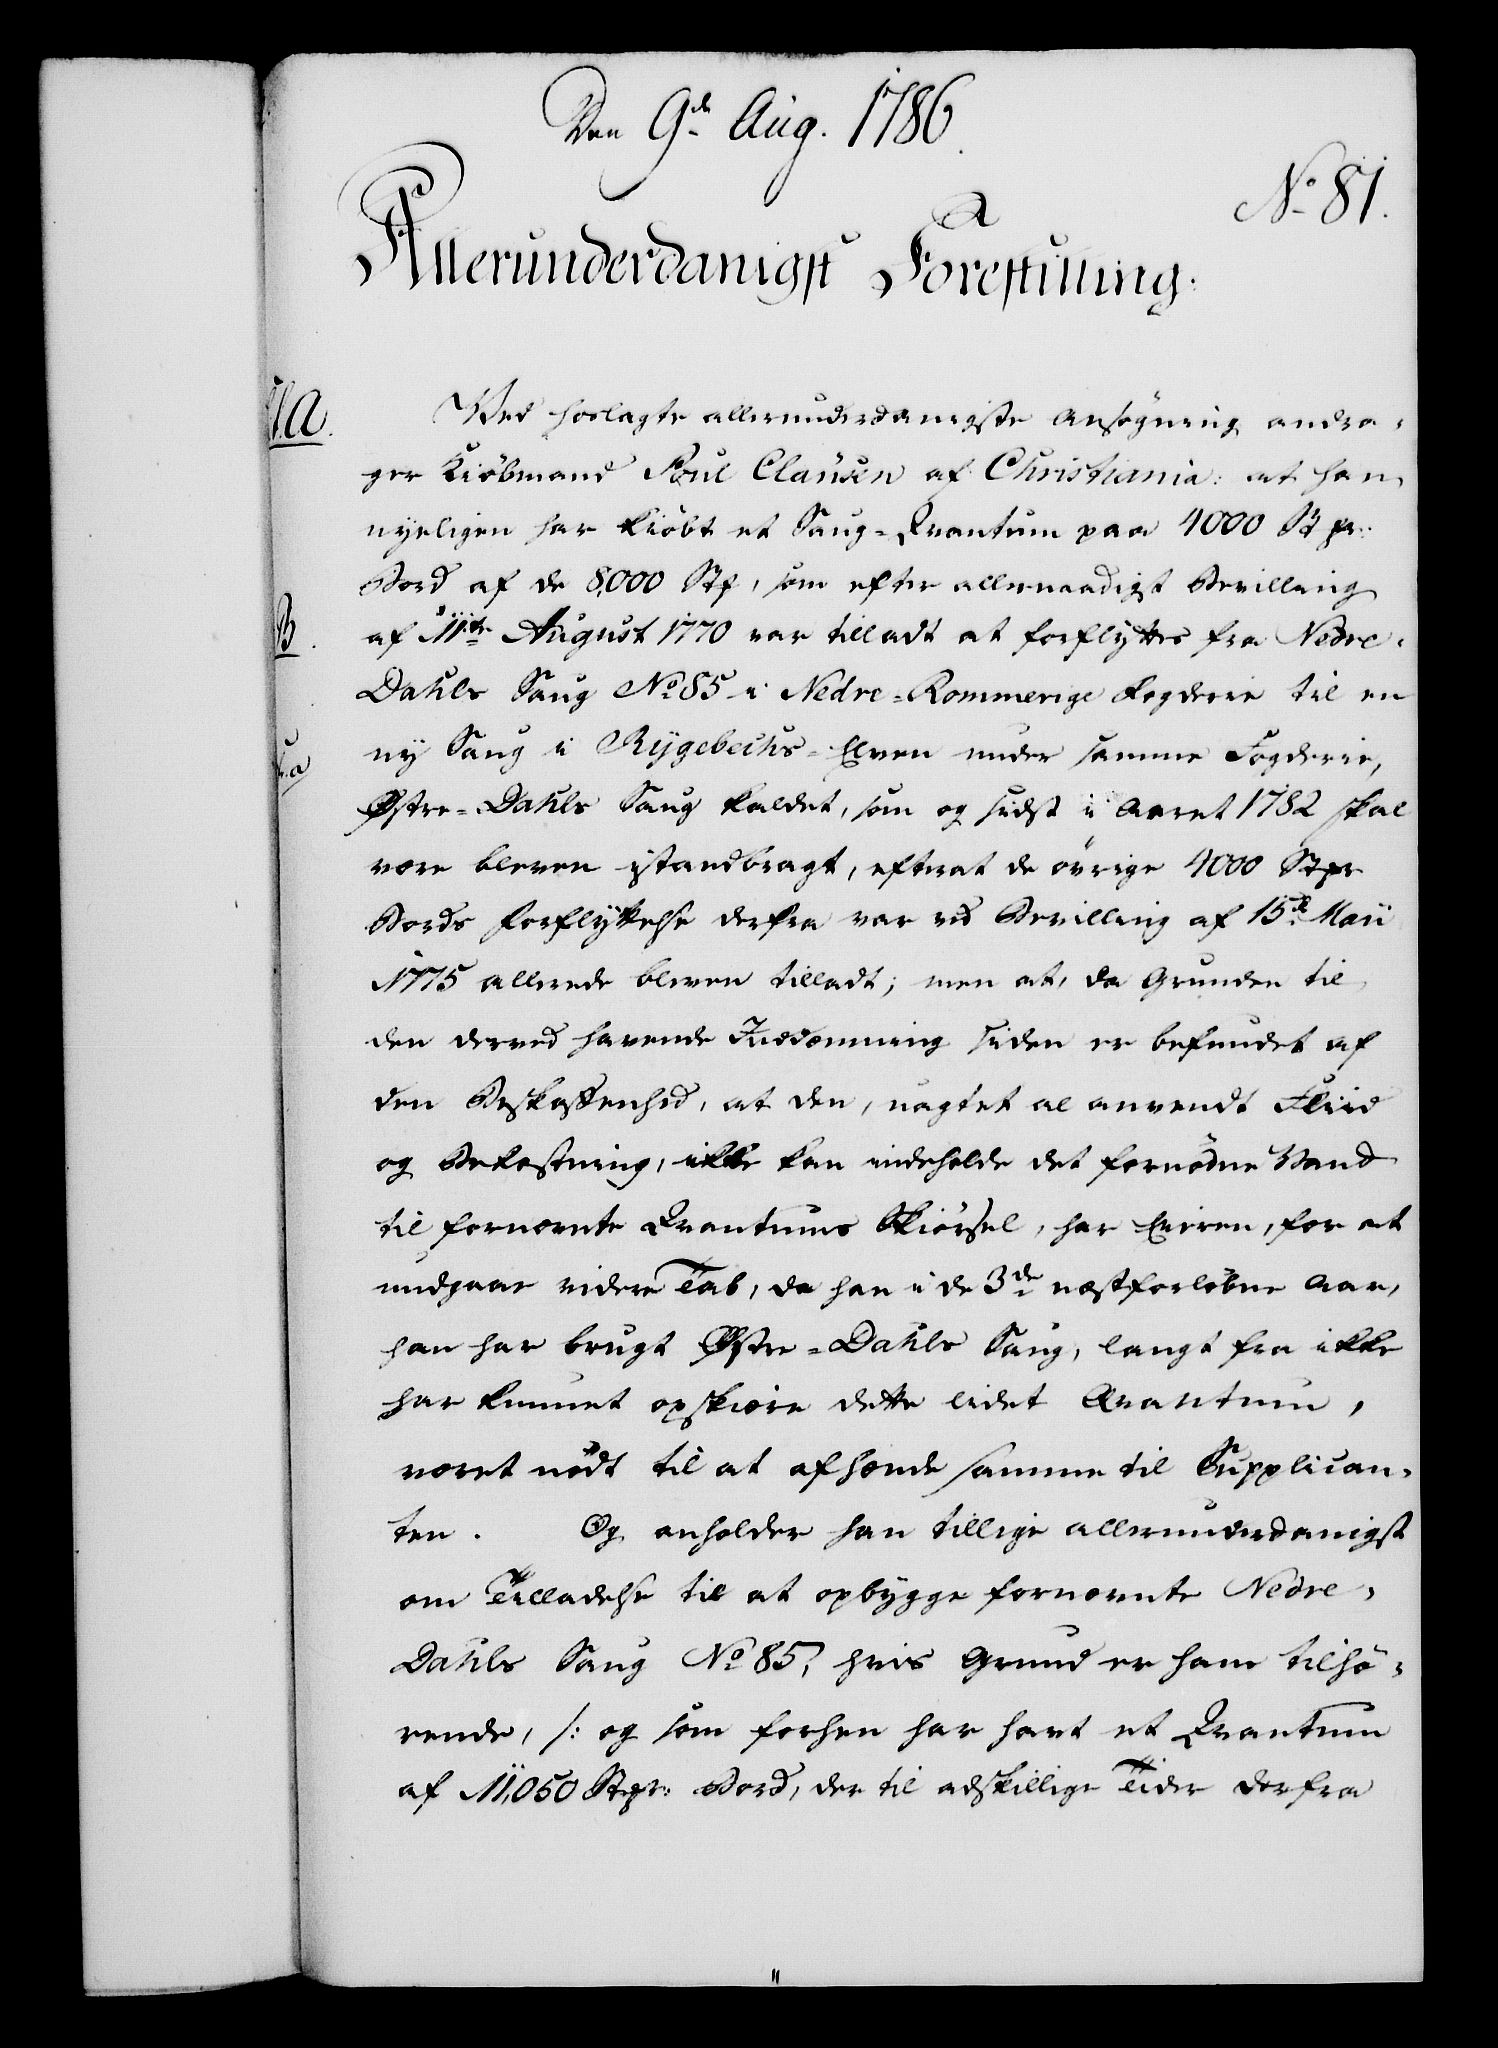 Den 9de Aug. 1786.
No 81.
Allerunderdanigst Forestilling.
A.
Ved hoslagte allerunderdanigste Ansøgning andra-
ger Kiøbmand Poul Clausen af Christiania: at han
nyeligen har kiøbt et Saug-Qvantum paa 4000 Stpr:
B.
Bord af de 8,000 Stp, som efter allernaadigst Bevilling
af 11te August 1770 var tilladt at forflyttes fra Nedre-
Dahls Saug No 85 i Nedre-Rommerige Fogderie til en
a
ny Saug i Rygebechs-Elven under samme Fogderie,
Østre-Dahls Saug kaldet, som og sidst i Aaret 1782 skal
være bleven istandbragt, efterat de øvrige 4000 Stpr
Bords Forflyttelse derfra var ved Bevilling af 15de Maii
1775 allerede bleven tilladt; men at, da Grunden til
den derved havende Inddæmning siden er befundet af
den Beskaffenhed, at den, uagtet al anvendt Fliid
og Bekostning, ikke kan indeholde det fornødne Vand
til fornævnte Qvantums Skiørsel, har Eieren, for at
undgaae videre Tab, da han i de 3de næstforløbne Aar,
han har brugt Østre-Dahls Saug, langt fra ikke
har kunnet opskiære dette lidet Qvantum,
været nødt til at afhænde samme til Supplican-
ten. Og anholder han tillige allerunderdanigst
om Tilladelse til at opbygge fornævnte Nedre-
Dahls Saug No 85, hvis Grund er ham tilhø-
rende, /: og som forhen har havt et Qvantum
af 11,050 Stpr: Bord, der til adskillige Tider derfra